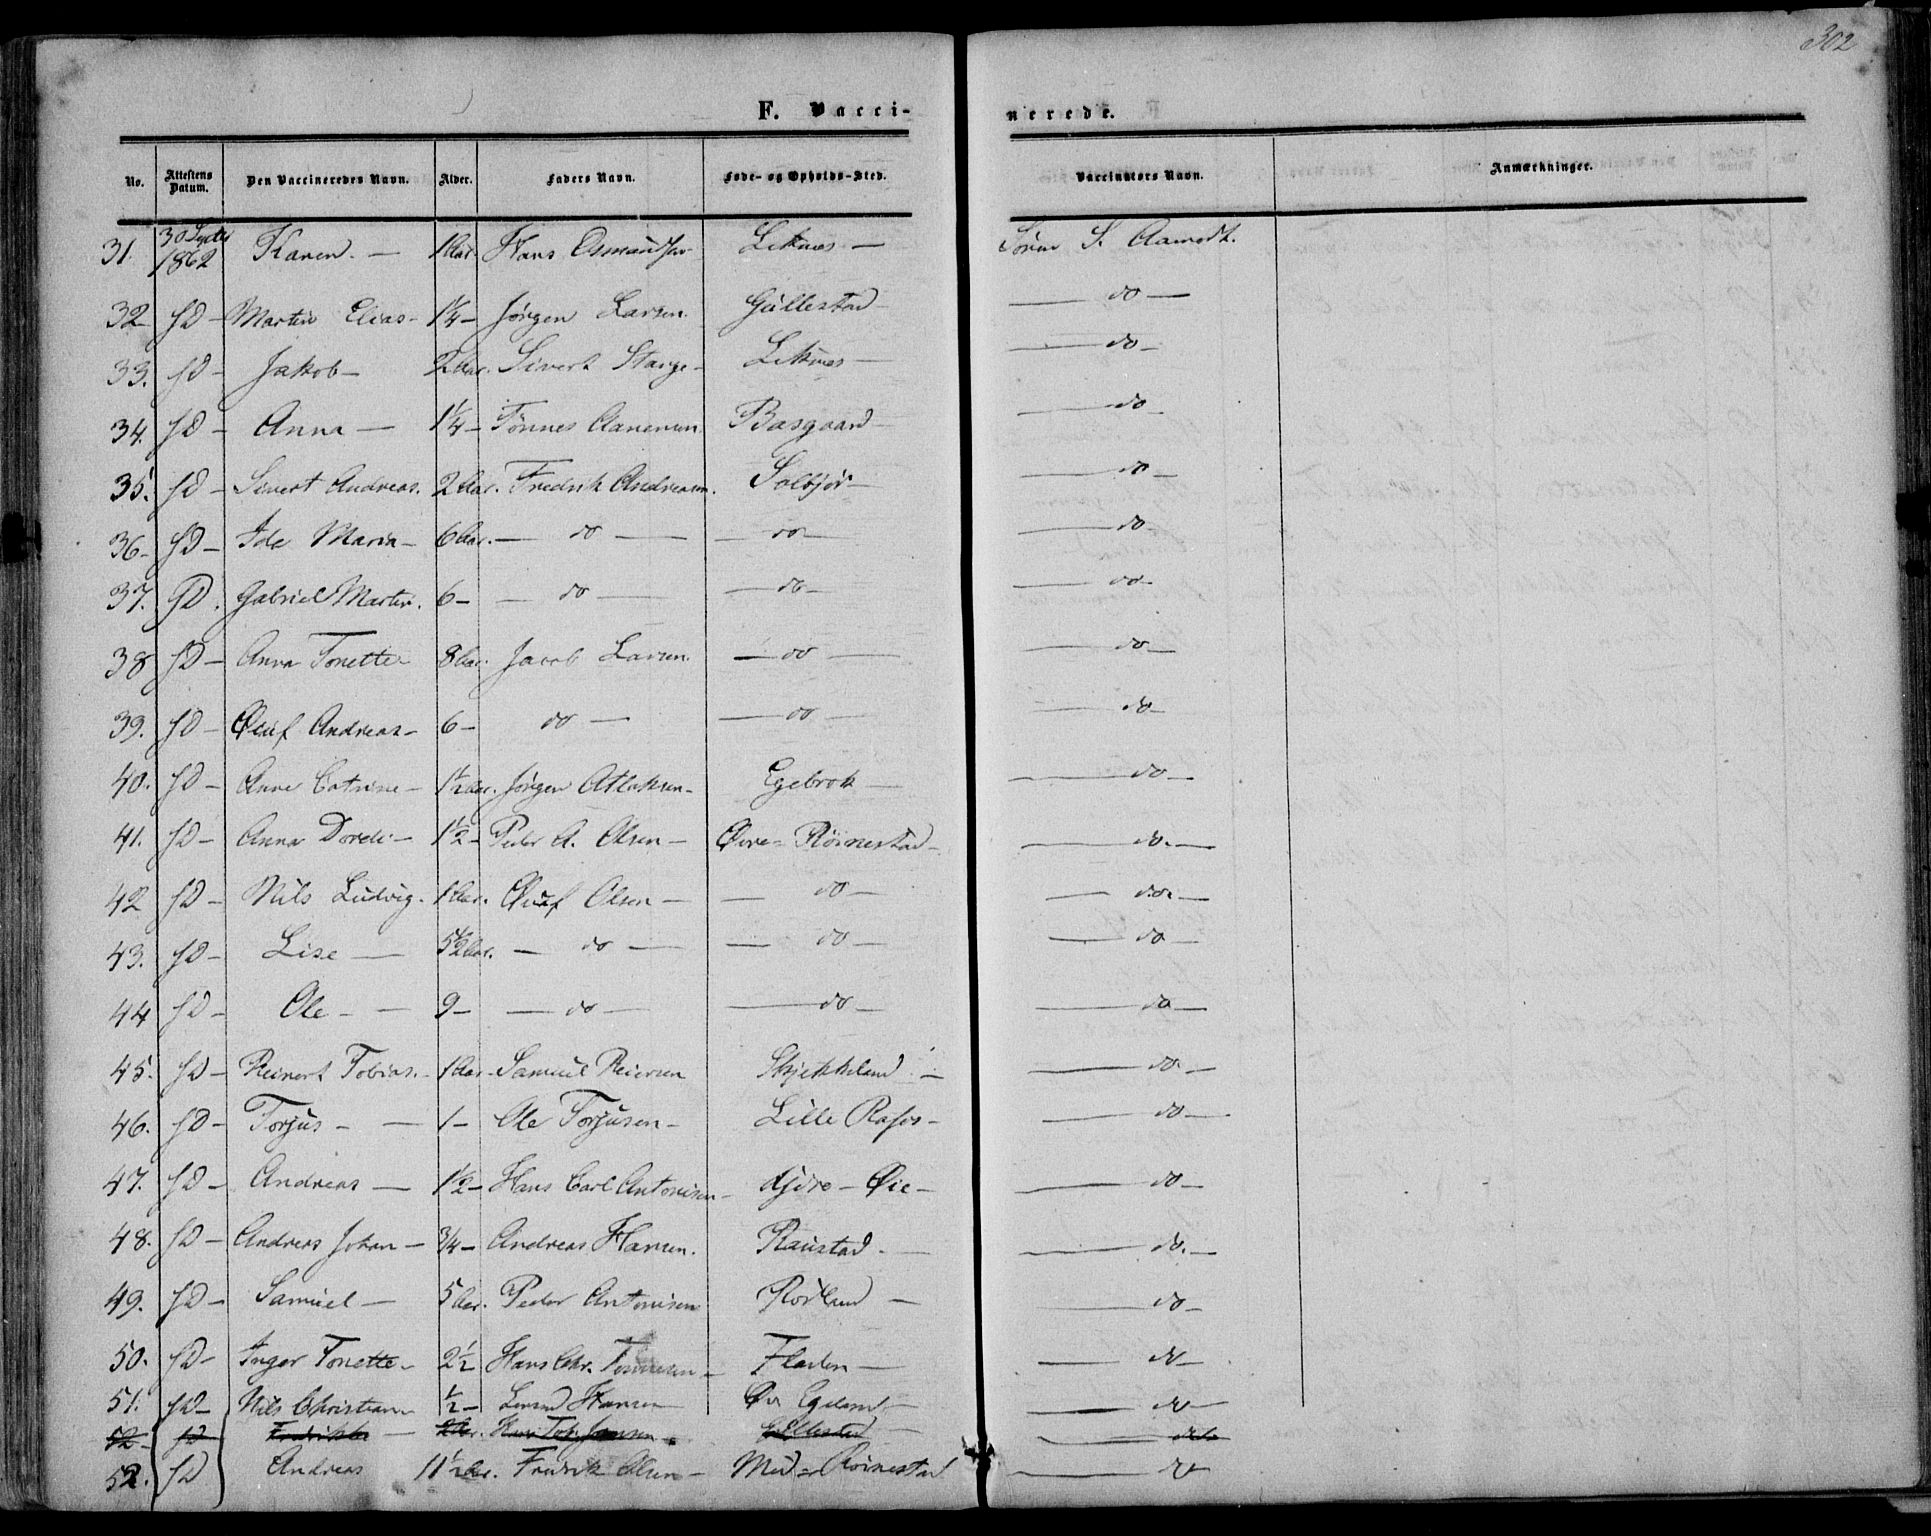 302
F. Vaccinerede.
No. Attestens Datum. Den Vaccineredes Navn. Alder. Faders Navn. Føde- og Opholds-Sted. Vaccinators Navn. Anmærkninger.
31. 30 1862 Karen. — 1 aar. Hans Osmundsen Liknes — Søren S. Aamodt.
32 sD — Martin Elias — 1¼ — Jørgen Larsen. Gullestad — do —
33. sD — Jakob — 2 aar. Sivert Stange — Liknes — do —
34. sD — Anna — 1¼ — Tønnes Aanensen Basgaard — do —
35. sD — Sivert Andreas. 2 aar. Fredrik Andreasen. Solbjør — do —
36 — sD — Ida Maria — 6 aar. — do — — do — — do —
37. sD. Gabriel Martin. 6 — — do — — do — — do —
38 sD — Anna Tonette 8 aar. Jacob Larsen. — do — — do —
39. sD — Oluf Andreas — 6 — do — — do — — do —
40. sD — Anne Catrine — 1½ aar. Jørgen Atlaksen — Egebrok — — do —
41. sD — Anna Dordi — 1½ — Peder A. Olsen — Øvre Røinestad — — do. —
42 sD — Nils Ludvig. 1 aar. Oluf Olsen — — do — — do. —
43. sD — Lise — 5½ aar. — do — — do — — do —
44 sD — Ole — — 9 — — do — — do — — do —
45. sD — Reinert Tobias. — 1 aar — Samuel Reiersen Skjekkeland — — do. —
46. sD — Torjus — — 1 — Ole Torjusen — Lille Rafos — — do —
47. sD — Andreas — 1½ — Hans Carl Antonisen — Øie — — do —
48. sD — Andreas Johan — ¾ — Andreas Hansen. Raustad. — — do. —
49. sD — Samuel — 5 aar. Peder Antonisen Rødland — — do —
50. sD — Inger Tonette — 2½ Hans Chr. Tønnesen — Fladen — — do —
51. sD — Nils Christian ½ — Hansen Egeland — — do —
52 — sD Fredrikke — 2 aar. Hans Tob. Jansen. Gullestad — — do
52. sD Andreas 11½ aar. Fredrik Olsen — Med Røinestad — do